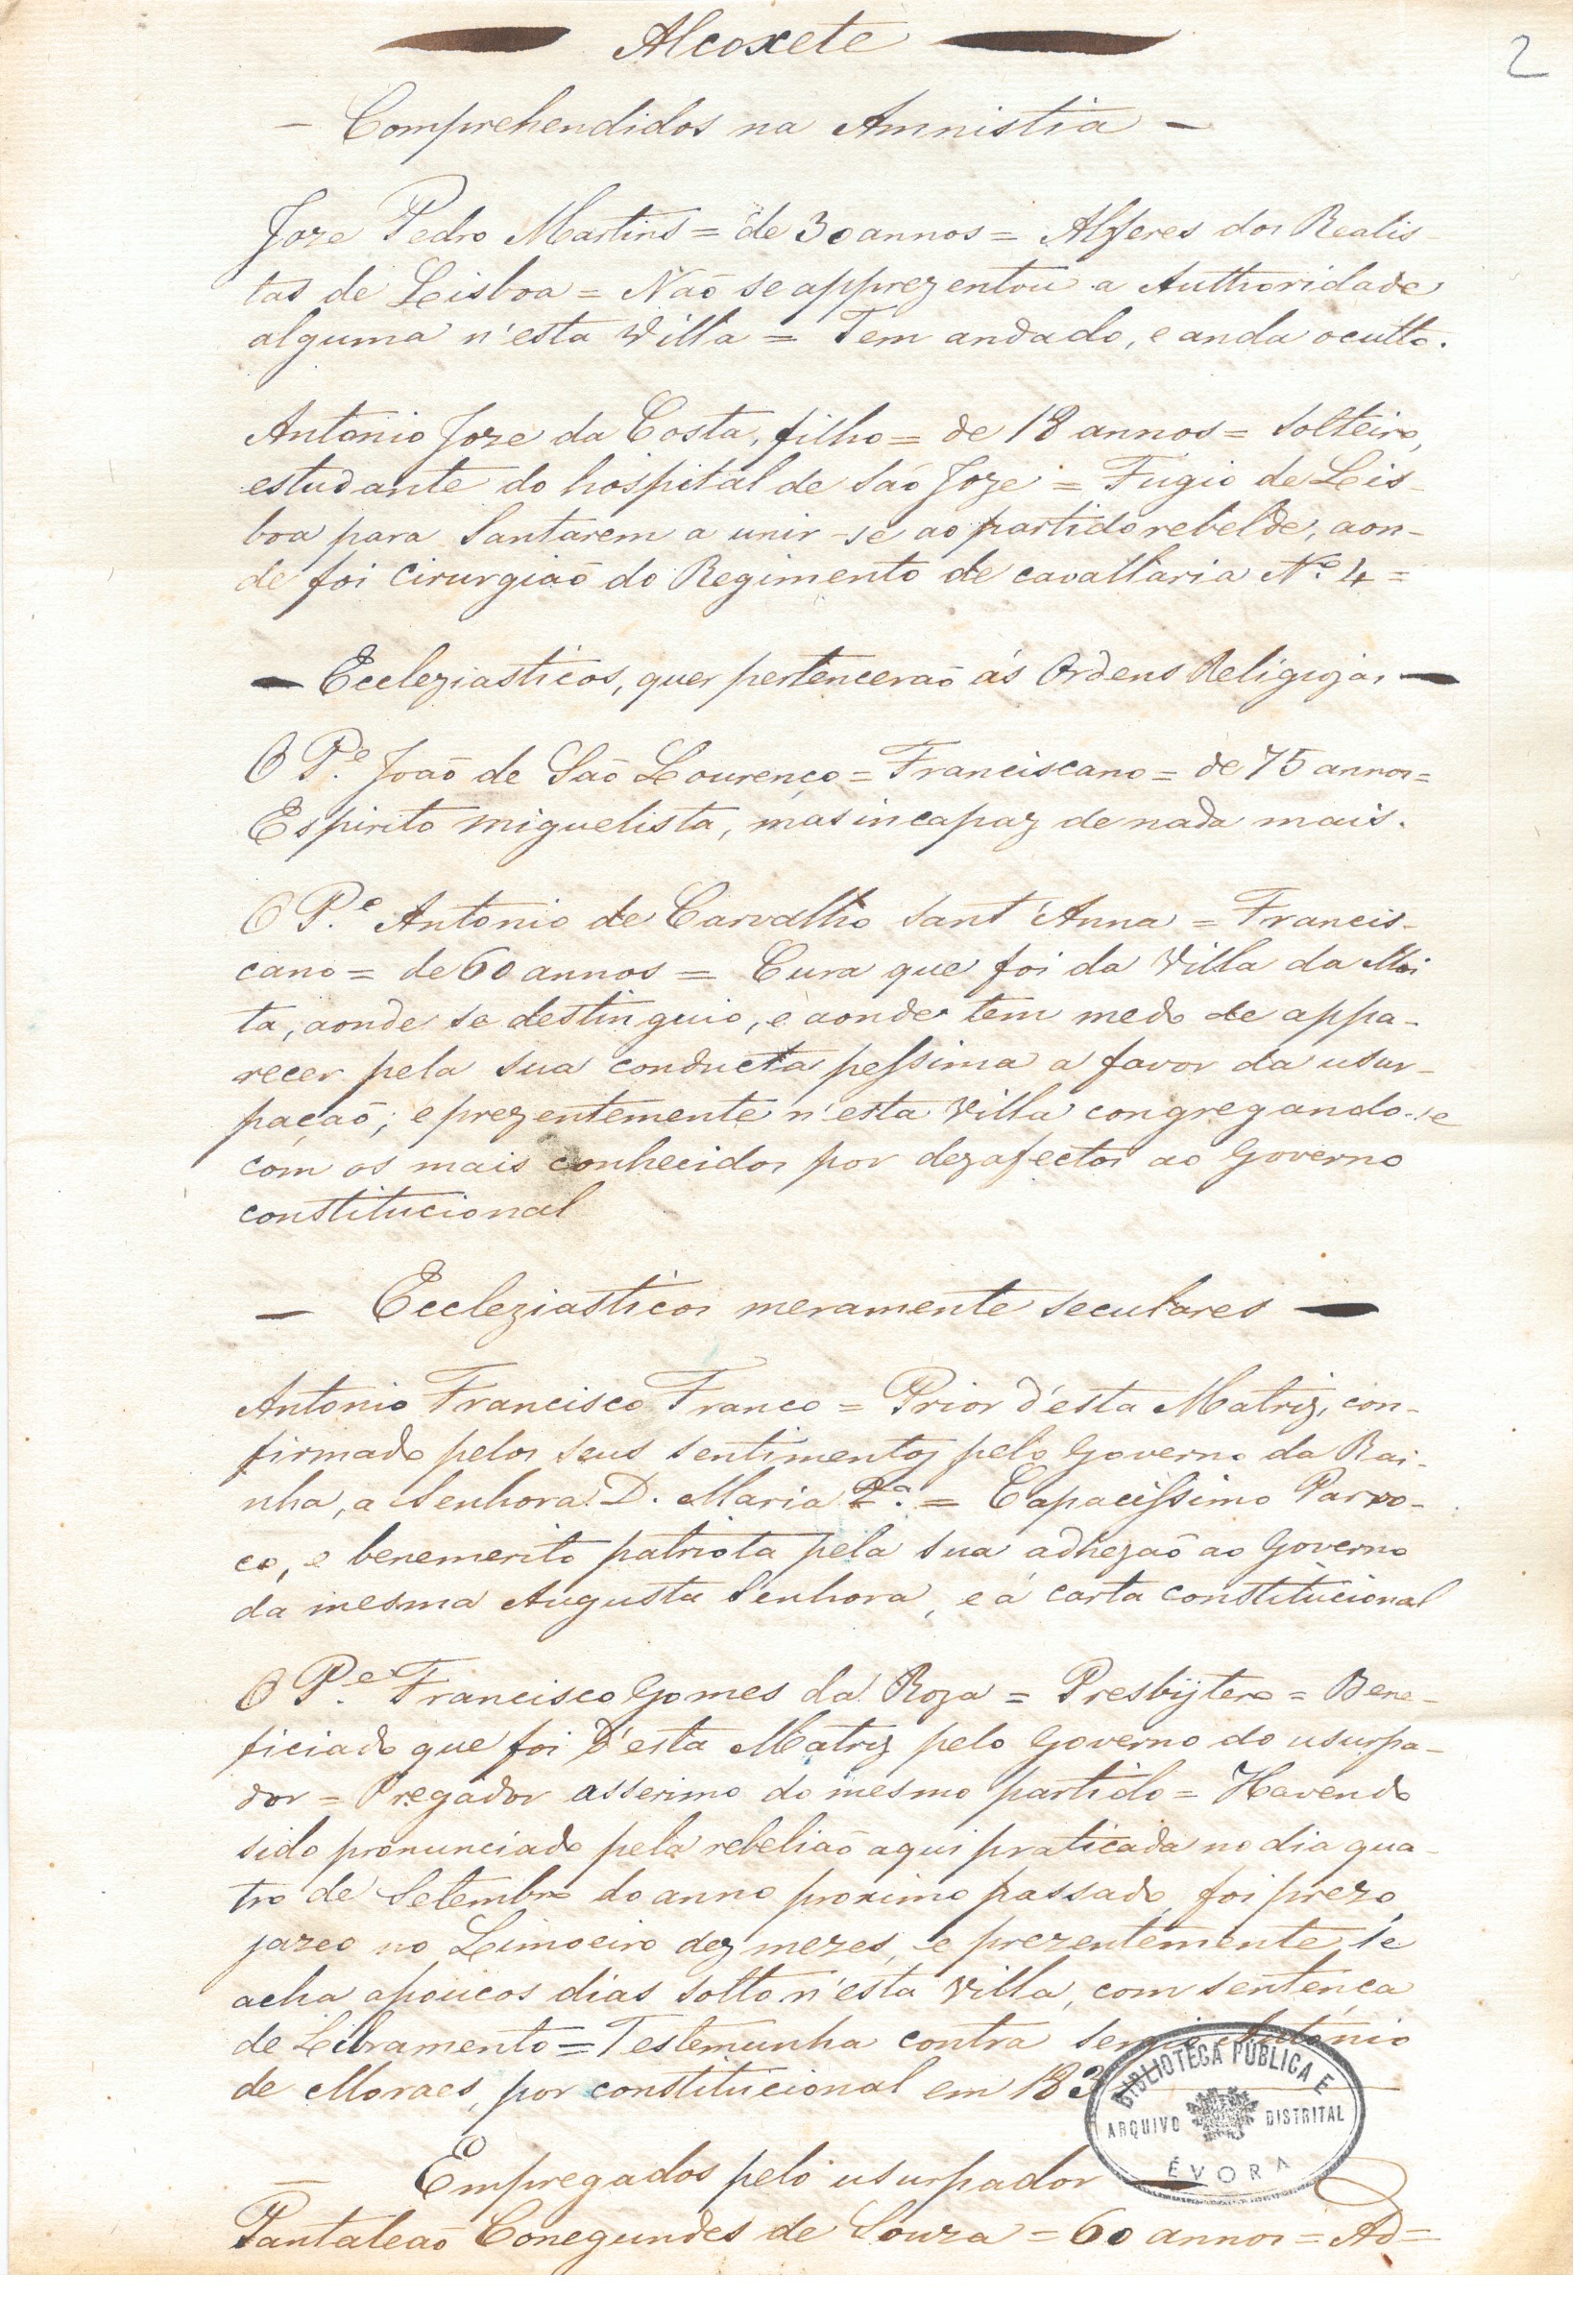 Alcoxete
2
- Comprehendidos na Amnistia -
Joze Pedro Martins = de 30 annos = Alferes dos Realis-
tas de Lisboa = Naõ se apprezentou a Authoridade
alguma n'esta Villa = Tem andado, e anda occulto.
Antonio Joze da Costa, filho = de 18 annos = solteiro,
estudante do hospital de saõ Joze = Fugio de Lis-
boa para Santarem a unir-se ao partido rebelde, aon-
de foi cirurgiaõ do Regimento de cavallaria Nº 4 =
- Eccleziasticos, que pertenceraõ ás Ordens Religiozas -
O Pe. Joaõ de Saõ Lourenço = Franciscano = de 75 annos =
Espirito miguelista, mas incapaz de nada mais.
O Pe. Antonio de Carvalho Sant'Anna = Francis-
cano = de 60 annos = Cura que foi da Villa da Moi
ta, aonde se destinguio, e aonde tem medo de appa-
recer pela sua conducta pessima a favor da usur-
paçaõ; e prezentemente n'esta Villa congregando-se
com os mais conhecidos por dezafectos ao Governo
constitucional
- Ecclesiasticos meramente seculares -
Antonio Francisco Franco = Prior d'esta Matriz, con-
firmado pelos seus sentimentos pelo Governo da Rai-
nha, a Senhora D. Maria 2ª. = Capacissimo Parro-
co, e benemerito patriota pela sua adhezaõ ao Governo
da mesma Augusta Senhora, e á carta constitucional
O Pe. Francisco Gomes da Roza = Presbytero = Bene-
ficiado que foi d'esta Matriz pelo Governo do usurpa-
dor = Pregador asserimo do mesmo partido = Havendo
sido pronunciado pela rebeliaõ aqui praticada no dia qua-
tro de Setembro do anno proximo passado, foi prezo,
jazeo no Limoeiro dez mezes, e prezentemente se
acha apoucos dias solto n'esta Villa, com sentença
de Livramento = Testemunha contra Antonio
de Moraes, por constitucional em 183
BIBLIOTECA PÚBLICA E
ARQUIVO DISTRITAL
ÉVORA
- Empregados pelo usurpador
Pantaleaõ Conegundes de Souza = 60 annos = Ad=